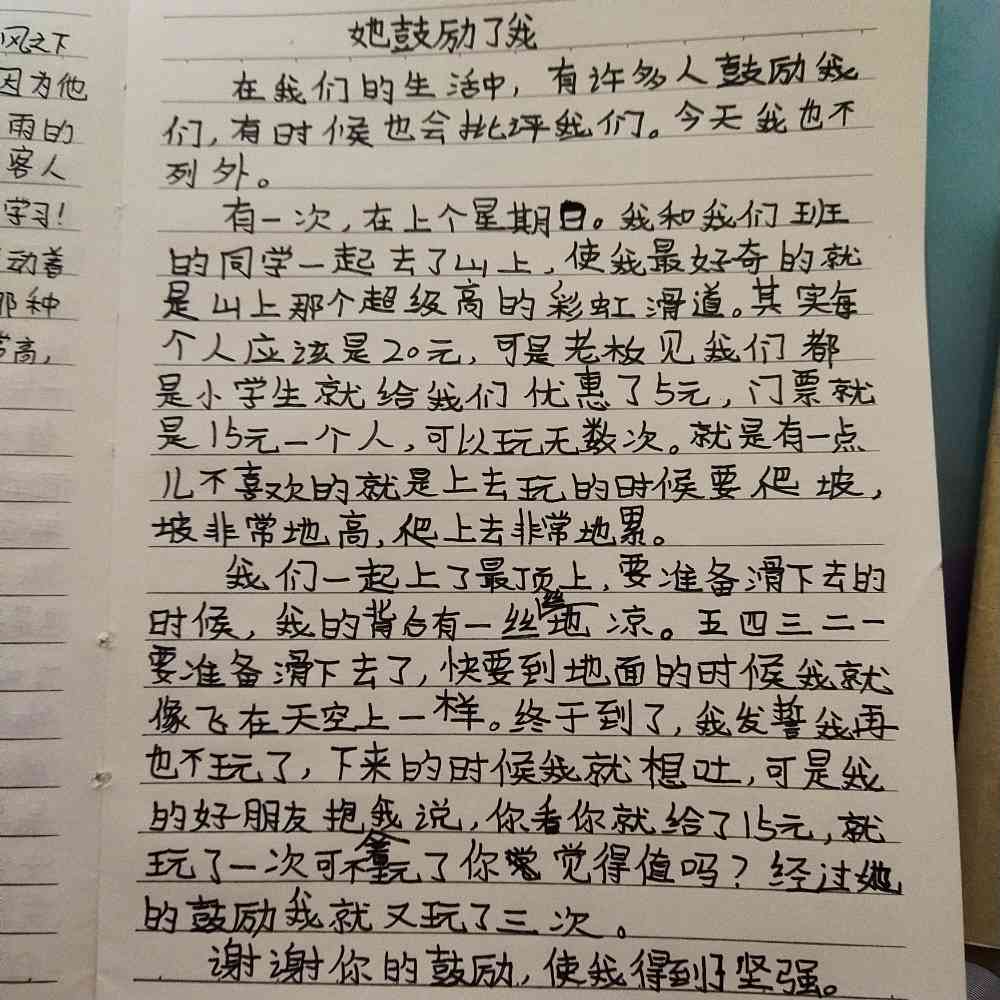 风之下
因为他
雨的
客人
学习!
动着
那种
高,
她鼓励了我
在我们的生活中,有许多人鼓励我
们,有时候也会批评我们。今天我也不
列外。
有一次,在上个星期日。我和我们班
的同学一起去了山上,使我最好奇的就
是山上那个超级高的彩虹滑道。其实每
个人应该是20元,可是老板见我们都
是小学生就给我们优惠了5元,门票就
是15元一个人,可以玩无数次。就是有一点
儿不喜欢的就是上去玩的时候要爬坡,
坡非常地高,爬上去非常地累。
我们一起上了最顶上,要准备滑下去的
时候,我的背后有一丝丝地凉。五四三二一
要准备滑下去了,快要到地面的时候我就
像飞在天空上一样。终于到了,我发誓我再
也不玩了,下来的时候我就想吐,可是我
的好朋友抱我说,你看你就给了15元,就
玩了一次可不玩了你觉得值吗?经过她
的鼓励我就又玩了三次。
谢谢你的鼓励,使我得到了坚强。